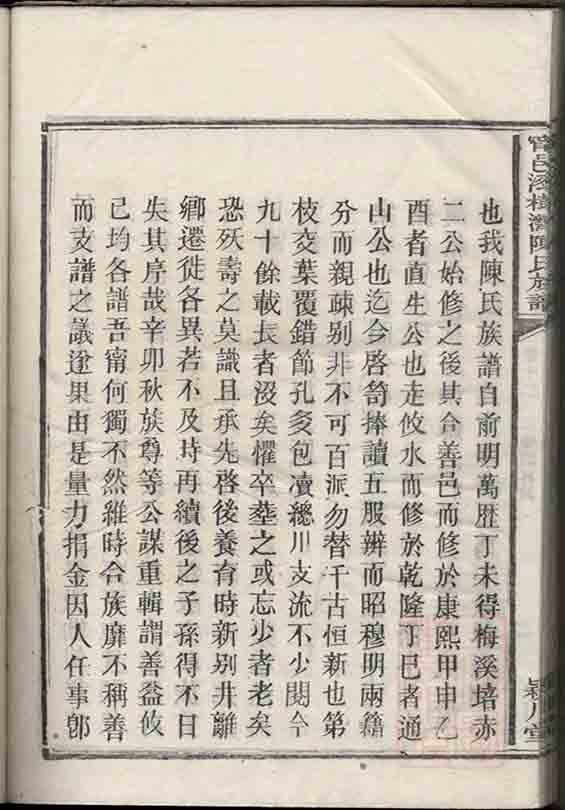 甯邑漆樹灣陳氏族譜
潁川堂
也我陳氏族譜自前明萬歷丁未得梅溪培赤
二公始修之後其合善邑而修於康熙甲申乙
酉者直生公也走攸水而修於乾隆丁巳者通
山公也迄今啓笥捧讀五服辨而昭穆明兩籍
分而親疎别非不可百派勿替千古恒新也第
枝交葉覆錯節孔多包凟緫川支流不少閱今
九十餘載長者沒矣懼卒塟之或忘少者老矣
恐殀壽之莫識且承先啓後養育時新别井離
鄉遷徙各異若不及时再續後之子孫得不日
失其序哉辛卯秋族尊等公謀重輯謂善益攸
已均各譜吾甯何獨不然維時合族靡不稱善
而支譜之議遂果由是量力捐金因人任事郎